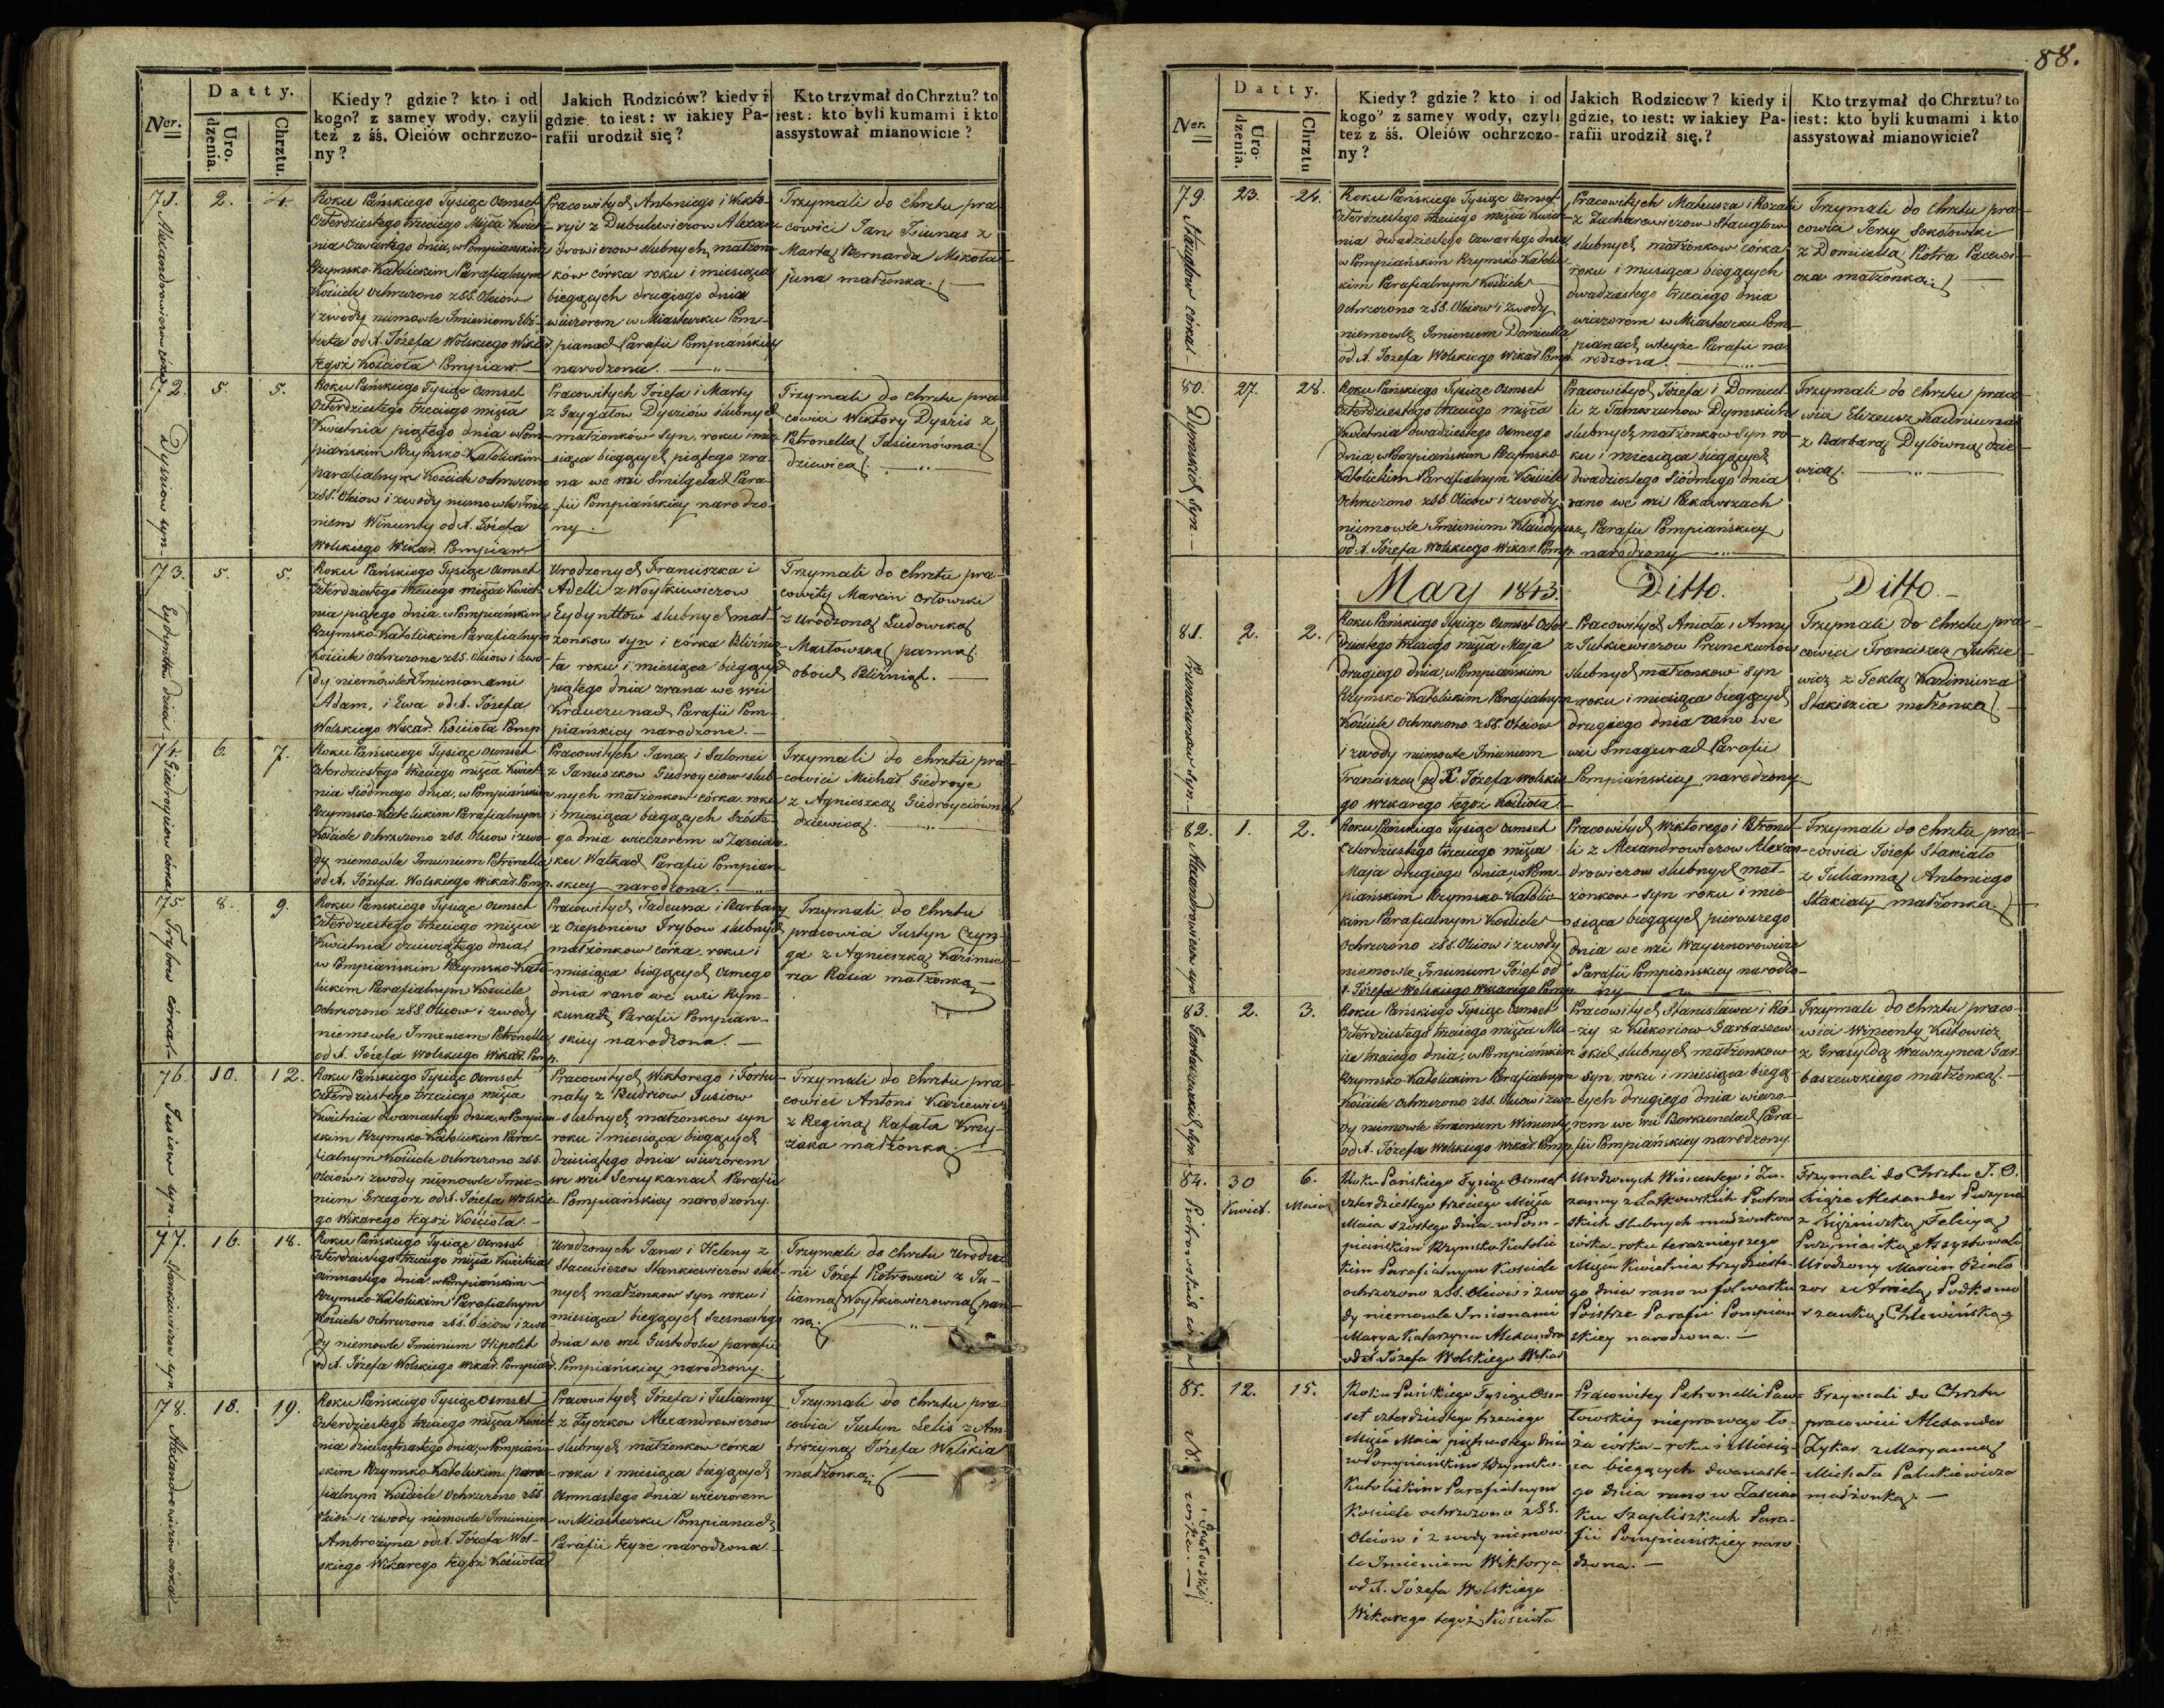 88.
Ner.
Datty.
Urodzenia.
Chrztu.
Kiedy? gdzie? kto i od
kogo? z samey wody, czyli
też z śś. Oleiów ochrzczo-
ny?
Jakich Rodziców? kiedy i
gdzie, to iest: w iakiey Pa-
rafii urodził się?
Kto trzymał do Chrztu? to
iest: kto byli kumami i kto
assystował mianowicie?
71. 2. 4.
Alexandrowiczow córka
Roku Pańskiego Tysiąc Osmset
Czterdziestego trzeciego Mięsca Kwiet-
nia Czwartego dnia, w Pompiańskim
Rzymsko-Katolickim Parafialnym
Kościele Ochrzczono z SS. Oleiów
i z wody niemowle Imieniem Elż-
bieta od X. Józefa Wolskiego Wikar.
tegoż Kościoła Pompiań.
Pracowitych Antoniego i Wikto-
ryi z Dubulewiczow Alexan-
drowiczow slubnych małżon-
ków córka roku i miesiąca
biegących drugiego dnia
wieczorem w Miasteczku Pom-
pianach Parafii Pompiańskiey
narodzona.
Trzymali do chrztu pra-
cowici Jan Ziunas z
Martą Bernarda Mikoła-
juna małżonką.
72. 5. 5.
Dysziow syn
Roku Pańskiego Tysiąc Osmset
Czterdziestego trzeciego mięsca
Kwietnia piątego dnia w Pom-
piańskim Rzymsko-Katolickim
parafialnym Kościele ochrzczono
z SS. Oleiow i z wody niemowle Imie-
niem Wincenty od X. Józefa
Wolskiego Wikar. Pompiań.
Pracowitych Józefa i Marty
z Grygałow Dysziów slubnych
małżonków syn, roku i mie-
siąca biegących piątego zra-
na we wsi Smilgelach Para-
fii Pompiańskiey narodzo-
ny.
Trzymali do chrztu pra-
cowici Wiktory Dyszis z
Petronellą Jasiunówną
dziewicą.
73. 5. 5.
Eydynttów dzieci
Roku Pańskiego Tysiąc Osmset
Czterdziestego trzeciego mięsca Kwiet-
nia piątego dnia w Pompiańskim
Rzymsko-Katolickim Parafialnym
Kościele Ochrzczono z SS. Oleiow i z wo-
dy niemowlęta Imionami
Adam, i Ewa od X. Józefa
Wolskiego Wikar. Kościoła Pomp.
Urodzonych Franciszka i
Adelli z Woytkiewiczow
Eydynttow slubnych mał-
żonkow syn i córka Bliźnię-
ta roku i miesiąca biegących
piątego dnia zrana we wsi
Krauczunach Parafii Pom-
piańskiey narodzone.
Trzymali do chrztu pra-
cowity Marcin Orłowski
z Urodzoną Ludowiką
Masłowską panną
oboich Bliźniąt.
74. 6. 7.
Giedroyciow córka
Roku Pańskiego Tysiąc Osmset
Czterdziestego trzeciego mięsca Kwiet-
nia siódmego dnia, w Pompiańskim
Rzymsko-Katolickim Parafialnym
Kościele Ochrzczono z SS. Oleiow i z wo-
dy niemowle Imieniem Petronella
od X. Józefa Wolskiego Wikar. Pomp.
Pracowitych Jana i Salomei
z Januszkow Giedroyciow slub-
nych małżonkow córka roku
i miesiąca biegących szóste-
go dnia wieczorem w Zaścian-
ku Watkach Parafii Pompiań-
skiey narodzona.
Trzymali do chrztu pra-
cowici Michał Giedroyc
z Agnieszką Giedroyciówną
dziewicą.
75. 8. 9.
Trybow córka
Roku Pańskiego Tysiąc Osmset
Czterdziestego trzeciego mięsca
Kwietnia dziewiątego dnia
w Pompiańskim Rzymsko-Kato-
lickim Parafialnym Kościele
Ochrzczono z SS. Oleiow i z wody
niemowle Imieniem Petronella
od X. Józefa Wolskiego Wikar. Pomp.
Pracowitych Tadeusza i Barbary
z Czepuniow Trybow slubnych
małżonkow córka roku i
miesiąca biegących Osmego
dnia rano we wsi Rym-
kunach Parafii Pompiań-
skiey narodzona.
Trzymali do Chrztu
pracowici Justyn Czyn-
ga z Agnieszką Kazimie-
rza Rasia małżonką
76. 10. 12.
Jusiow syn.
Roku Pańskiego Tysiąc Osmset
Czterdziestego trzeciego mięsca
Kwietnia dwanastego dnia, w Pompiań-
skim Rzymsko-Katolickim Para-
fialnym Kościele Ochrzczono z SS.
Oleiów i z wody niemowle Imie-
niem Grzegorz od X. Józefa Wolskie-
go Wikarego tegoż Kościoła.
Pracowitych Wiktorego i Fortu-
naty z Kudziow Jusiow
slubnych małżonkow syn
roku i miesiąca biegących
dziesiątego dnia wieczorem
we wsi Serykanach Parafii
Pompiańskiey narodzony.
Trzymali do Chrztu pra-
cowici Antoni Kaziewicz
z Reginą Rafała Krzy-
żaka małżonką.
77. 16. 18.
Stankiewiczow syn.
Roku Pańskiego Tysiąc Osmset
Czterdziestego trzeciego mięsca Kwietnia
Osmnastego dnia w Pompiańskim
Rzymsko-Katolickim Parafialnym
Kościele Ochrzczono z SS. Oleiow i z wo-
dy niemowle Imieniem Hipolit
od X. Józefa Wolskiego Wikar. Pompiań.
Urodzonych Jana i Heleny z
Stacewiczow Stankiewiczow slub-
nych małżonkow syn roku i
miesiąca biegących szesnastego
dnia we wsi Gustodolu parafii
Pompiańskiey narodzony.
Trzymali do chrztu Urodze-
ni Józef Piotrowski z Ju-
lianną Woytkiewiczowną pan-
ną.
78. 18. 19.
Alexandrowiczow córka
Roku Pańskiego Tysiąc Osmset
Czterdziestego trzeciego mięsca Kwiet-
nia dziewiętnastego dnia, w Pompiań-
skim Rzymsko-Katolickim para-
fialnym Kościele Ochrzczono z SS.
Oleiów i z wody niemowle Imieniem
Ambrożyna od X. Józefa Wol-
skiego Wikarego tegoż Kościoła
Pracowitych Józefa i Julianny
z Zyczkow Alexandrowiczow
slubnych małżonkow córka
roku i miesiąca biegących
Osmnastego dnia wieczorem
w Miasteczku Pompianach
Parafii teyże narodzona.
Trzymali do chrztu pra-
cowici Justyn Lelis z Am-
brożyną Józefa Welikia
małżonką.
Ner.
Datty.
Urodzenia.
Chrztu
Kiedy? gdzie? kto i od
kogo? z samey wody, czyli
też z śś. Oleiów ochrzczo-
ny?
Jakich Rodzicow? kiedy i
gdzie, to iest: w iakiey Pa-
rafii urodził się.?
Kto trzymał do Chrztu? to
iest: kto byli kumami i kto
assystował mianowicie?
79. 23. 24.
Stauglow córka
Roku Pańskiego Tysiąc Osmset
Czterdziestego trzeciego mięsca Kwiet-
nia dwadziestego Czwartego dnia
w Pompiańskim Rzymsko-Katolic-
kim Parafialnym Kościele
Ochrzczono z SS. Oleiow i z wody
niemowle Imieniem Domicella
od X. Józefa Wolskiego Wikar. Pomp.
Pracowitych Mateusza i Rozalii
z Zacharewiczow Stauglow
slubnych małżonkow córka
roku i miesiąca biegących
dwadziestego trzeciego dnia
wieczorem w Miasteczku Pom-
pianach w teyże Parafii na-
rodzona.
Trzymali do Chrztu pra-
cowici Jerzy Sokołowski
z Domicellą Piotra Pacewi-
cza małżonką.
80. 27. 28.
Dymskich syn.
Roku Pańskiego Tysiąc Osmset
Czterdziestego trzeciego mięsca
Kwietnia dwadziestego Osmego
dnia, w Pompiańskim Rzymsko-
Katolickim Parafialnym Kościele
Ochrzczono z SS. Oleiow i z wody
niemowle Imieniem Klaudyusz
od X. Józefa Wolskiego Wikar. Pomp.
Pracowitych Józefa i Domicel-
li z Tamoszunow Dymskich
slubnych małżonkow syn ro-
ku i miesiąca biegących
dwadziestego siódmego dnia
rano we wsi Pakawszach
Parafii Pompiańskiey
narodzony
Trzymali do chrztu praco-
wici Elizeusz Kadziunas
z Barbarą Dylówną dzie-
wicą.
May 1843. Ditto. Ditto.
81. 2. 2.
Prunekunow syn.
Roku Pańskiego Tysiąc Osmset Czter-
dziestego trzeciego mięsca Maja
drugiego dnia, w Pompiańskim
Rzymsko-Katolickim Parafialnym
Kościele Ochrzczono z SS. Oleiow
i z wody niemowle Imieniem
Franciszek od X. Józefa Wolskie-
go Wikarego tegoż Kościoła.
Pracowitych Anioła i Anny
z Jutkiewiczow Prunekunow
slubnych małżonkow syn
roku i miesiąca biegących
drugiego dnia rano we
wsi Smagurach Parafii
Pompiańskiey narodzony
Trzymali do Chrztu pra-
cowici Franciszek Jutkie-
wicz z Teklą Kazimierza
Stakiszia małżonką.
82. 1. 2.
Alexandrowiczow syn
Roku Pańskiego Tysiąc Osmset
Czterdziestego trzeciego mięsca
Maja drugiego dnia, w Pom-
piańskim Rzymsko-Katolic-
kim Parafialnym Kościele
Ochrzczono z SS. Oleiow i z wody
niemowle Imieniem Józef od
X. Józefa Wolskiego Wikarego Pomp.
Pracowitych Wiktorego i Petronel-
li z Alexandrowiczow Alexan-
drowiczow slubnych mał-
żonkow syn roku i mie-
siąca biegących pierwszego
dnia we wsi Waysznorowicze
Parafii Pompiańskiey narodzo-
ny
Trzymali do chrztu pra-
cowici Józef Stakiało
z Julianną Antoniego
Stakiały małżonką.
83. 2. 3.
Garbaszewskich syn
Roku Pańskiego Tysiąc Osmset
Czterdziestego trzeciego mięsca Ma-
ia trzeciego dnia, w Pompiańskim
Rzymsko-Katolickim Parafialnym
Kościele Ochrzczono z SS. Oleiow i z wo-
dy niemowle Imieniem Wincenty
od X. Józefa Wolskiego Wikar. Pomp.
Pracowitych Stanisława i Ró-
ży z Kukoriow Garbaszew-
skich slubnych małżonkow
syn, roku i miesiąca biegą-
cych drugiego dnia wieczo-
rem we wsi Borkunelach Para-
fii Pompiańskiey narodzony.
Trzymali do Chrztu praco-
wici Wincenty Kutowicz
z Grasyldą Wawrzynca Gar-
baszewskiego małżonką.
84. 30 Kwiet. 6. Maia
Piotrowskich
Roku Pańskiego Tysiąc Osmset
czterdziestego trzeciego Mięsca
Maia szóstego dnia w Pom-
piańskim Rzymsko Katolic-
kim Parafialnym Kościele
ochrzczono z SS. Oleiow i z wo-
dy niemowle Imionami
Marya Katarzyna Alexandra
od X. Józefa Wolskiego Wikar
Urodzonych Wincentego i Zu-
zanny z Łatkowskich Piotrow-
skich slubnych małżonkow
córka roku teraznieyszego
Mięsca Kwietnia trzydzieste-
go dnia rano w folwarku
Poistrze Parafii Pompiań-
skiey narodzona.
Trzymali do Chrztu J. O.
Xiąże Alexander Puzyna
z Xiężniczką Felicyą
Puzynianką Assystowali
Urodzony Marcin Białło-
zor z Anielą Podkomo-
rzanką Chlewińską
85. 12. 15.
NB. Pawłowskiey córka.
Roku Pańskiego Tysiąc Osm-
set czterdziestego trzeciego
Mięsca Maia piętnastego dnia
w Pompiańskim Rzymsko-
Katolickim Parafialnym
Kościele ochrzczono z SS.
Oleiow i z wody niemow-
le Imieniem Wiktorya
od X. Józefa Wolskiego
Wikarego tegoż Kościoła
Pracowitey Petronelli Paw-
łowskiey nieprawego ło-
ża córka roku i Miesią-
ca biegących dwunaste-
go dnia rano w Zaścian-
ku Szapliszkach Para-
fii Pompiańskiey naro-
dzona.
Trzymali do Chrztu
pracowici Alexander
Zykas z Maryanną
Michała Palukiewicza
małżonką.